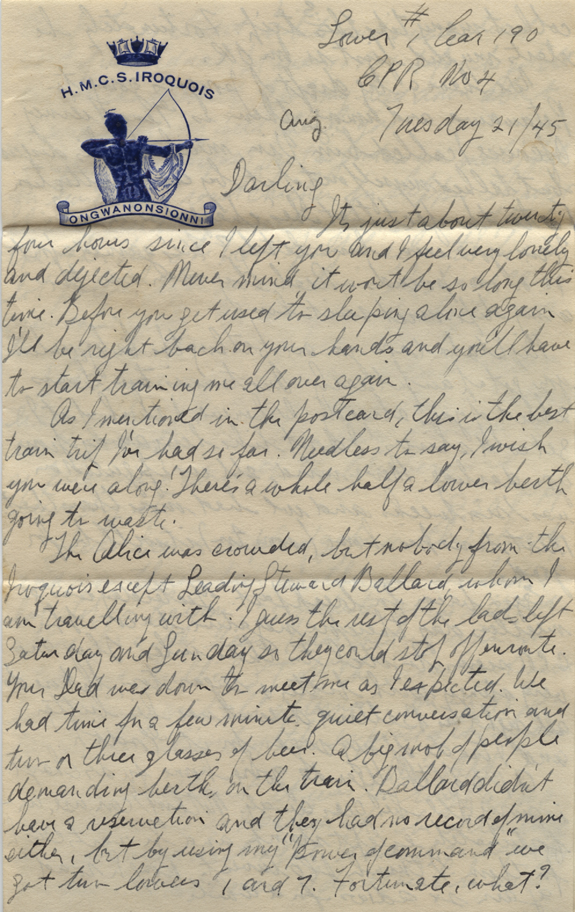 Lower #1 Car 190
CPR No 4
Aug. Tuesday 21/45
H.M.C.S. IROQUOIS
ONGWANONSIONNI
Darling
Its just about twenty
four hours since I left you and I feel very lonely
and dejected. Never mind, it won't be so long this
time. Before you get used to sleeping alone again
I'll be right back on your hands and you'll have
to start training me all over again.
As I mentioned in the postcard, this is the best
train trip I've had so far. Needless to say, I wish
you were along! There's a whole half a lower berth
going to waste.
The Alice was crowded, but nobody from the
Iroquois except Leading Steward Ballard, whom I
am travelling with. I guess the rest of the lads left
Saturday and Sunday so they could stop off enroute.
Your Dad was down to meet me as I expected. We
had time for a few minutes quiet conversation and
two or three glasses of beer. A big mob of people
demanding berths on the train. Ballard didn't
have a reservation and they had no record of mine
either, but by using my "power of command" we
got two lowers 1 and 7. Fortunate, what?